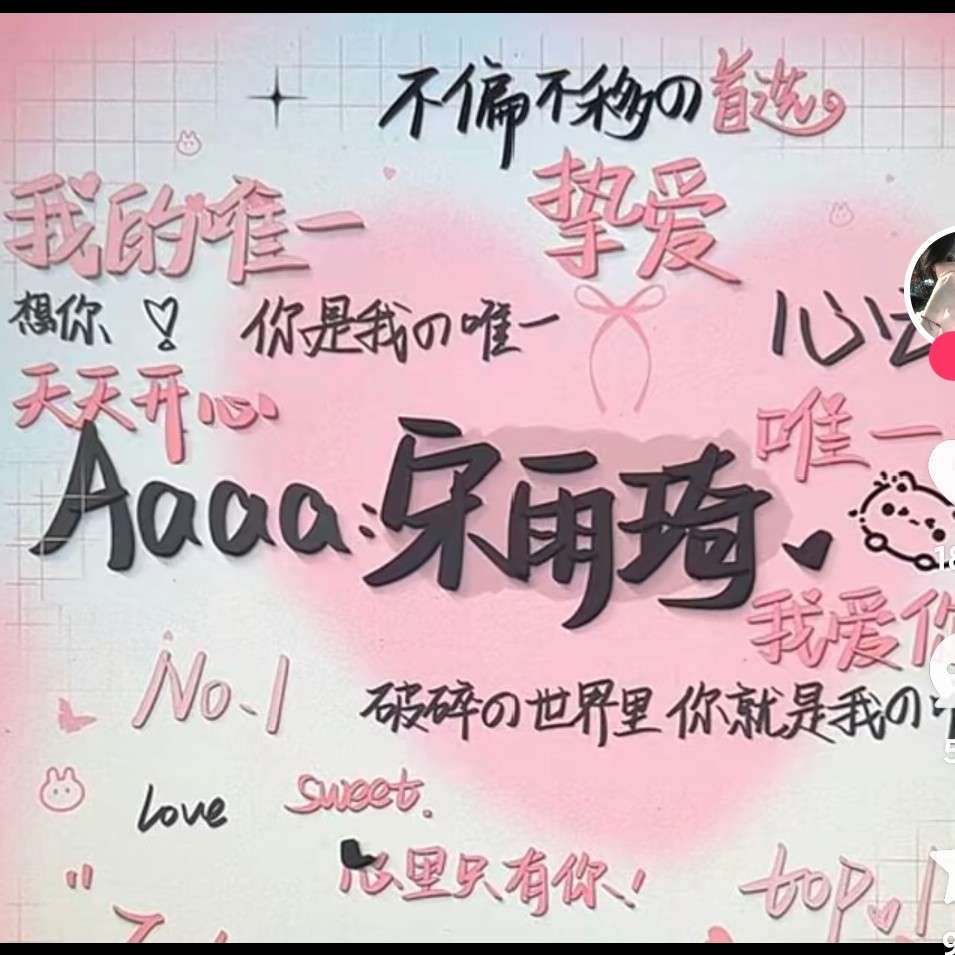 不偏不移の首选
挚爱
我的唯一
想你
你是我の唯一
天天开心
唯一
Aaaa:宋雨琦
我爱你
No.1
破碎の世界里 你就是我の
Love
sweet.
心里只有你!
top.1